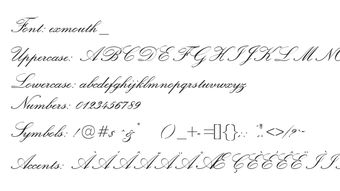 Font: exmouth_
Uppercase: ABCDEFGHIJKLMNO
Lowercase: abcdefghijklmnopqrstuvwxyz
Numbers: 0123456789
Symbols: !@#$ &* ()_+-=[]{};: '",.<>/?~
Accents: ÀÁÂÃÄÅÆÇÈÉÊËÌÍ